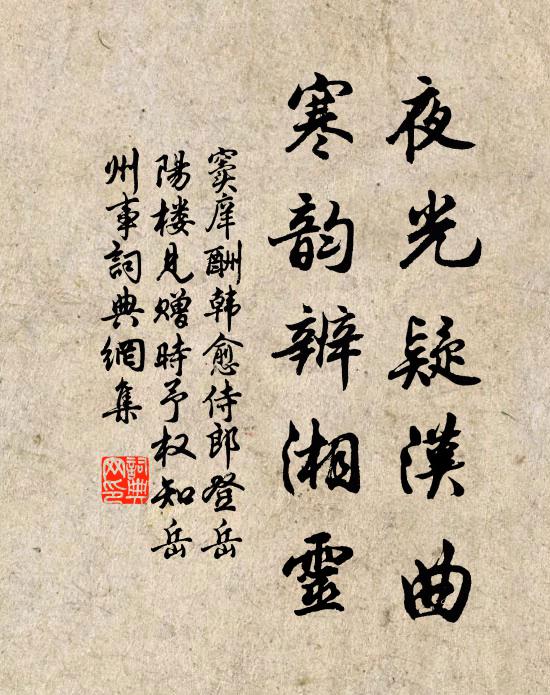 夜光疑漢曲
寒韵辨湘靈
窦庠酬韩愈侍郎登岳
陽楼見贈時予权知岳
州事詞典網集
詞典
网印